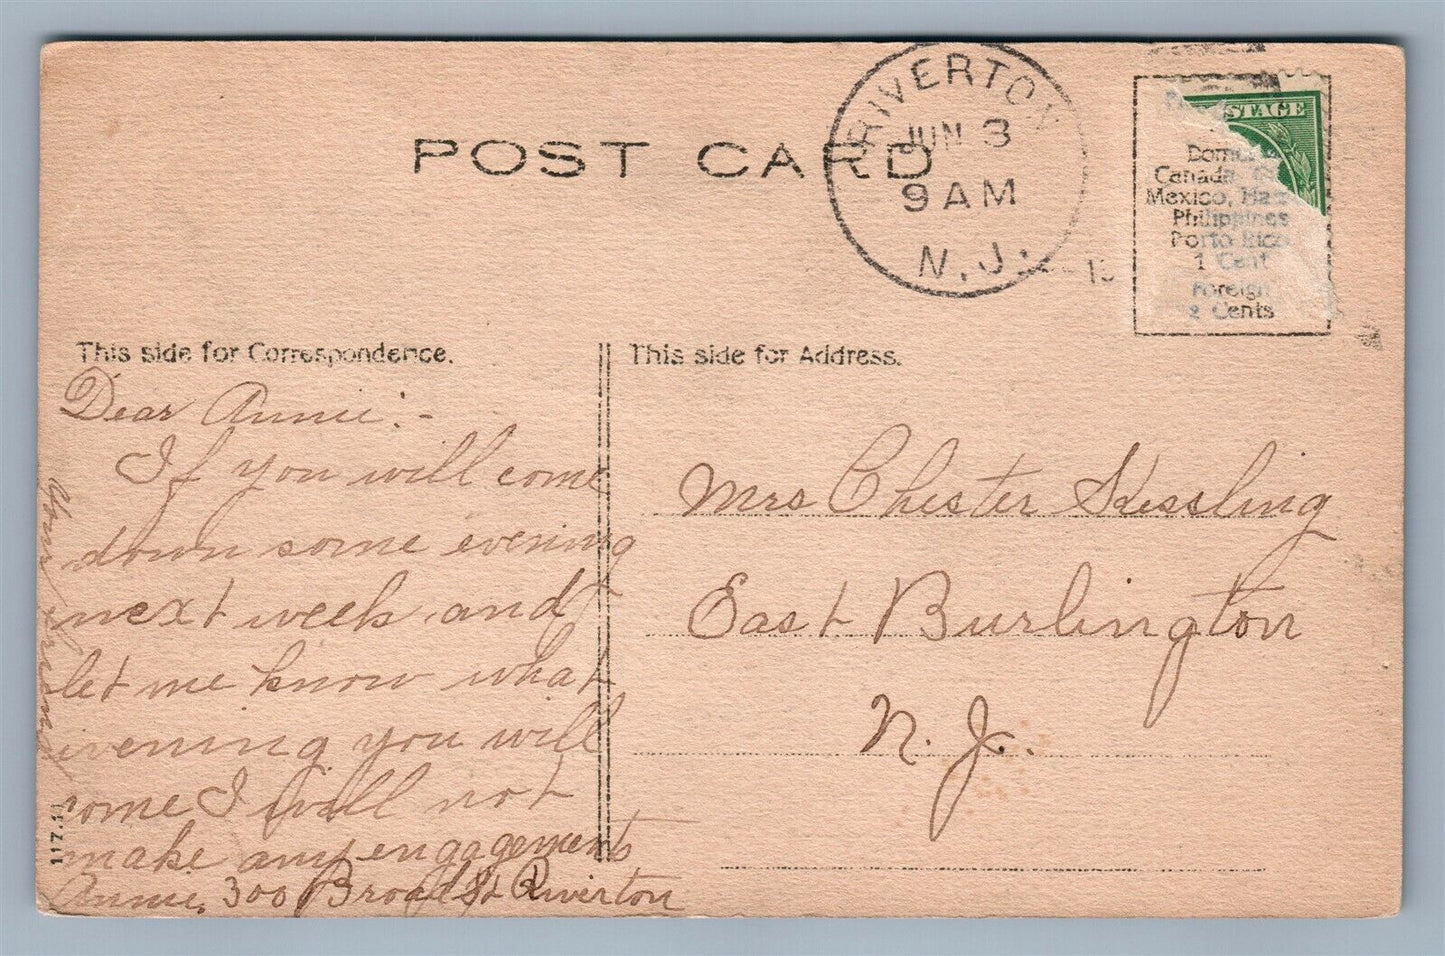 POST CARD
RIVERTON
JUN 3
9 AM
N.J.
POSTAGE
Canada
Mexico,
Philippines
Porto Rico
1 Cent
Foreign
2 Cents
This side for Correspondence.
This side for Address.
Dear Annie:-
If you will come
down some evening
next week and
let me know what
evening you will
come I will not
make any engagements
Annie, 300 Broad St Riverton
Your friend
117.11
Mrs Chester Kessling
East Burlington
N. J.